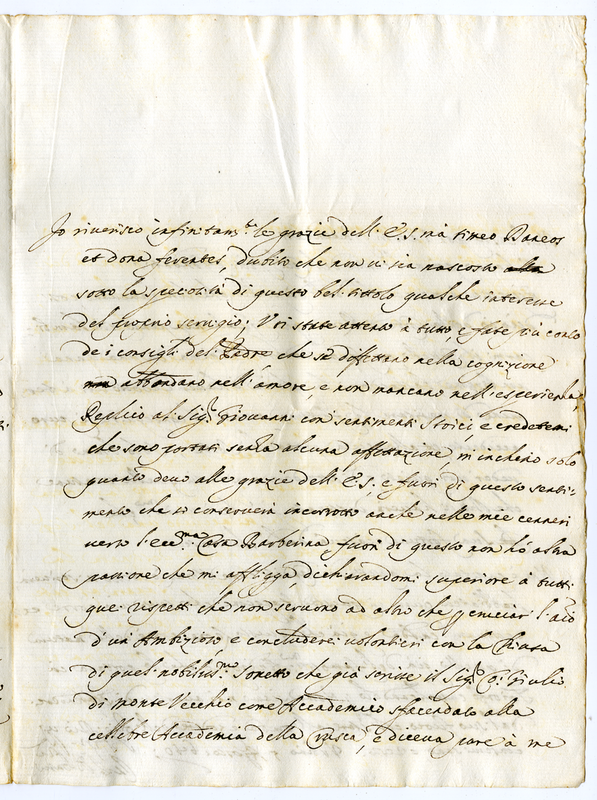 Io riverisco infinitam.te le grazie dell' E.S. mà timeo Danaos
et dona ferentes, dubito che non vi sia nascosto alla
sotto la speciosità di questo bel tittolo qualche interesse
del proprio servigio; Voi state attento à tutto, e fate più conto
de i consigli del Padre, che se diffettano nella cognizione
abbondano nell' amore, e non mancano nell' esperienza
Replico al Sig.r Giovanni con sentimenti Stoici, e credetemi
che sono portati senza alcuna affettazione, m'inchino solo
quanto devo alle grazie dell' E.S, e fuori di questo senti-
mento che si conserverà incorrotto anche nelle mie ceneri
verso l'ecc.ma Casa Barberina fuori di questo non hò altra
passione che mi affligga, dichiarandomi superiore à tutti
quei rispetti che non servono ad altro che cruciar l'
d'un Ambizioso, e concluderei volontieri con la Chiusa
di quel nobiliss.mo sonetto che già scrisse il Sig.r Co: Giulio
di Monte Vecchio come Accademico sfacendato alla
cellebre Accademia della Crusca, e diceva pure à me